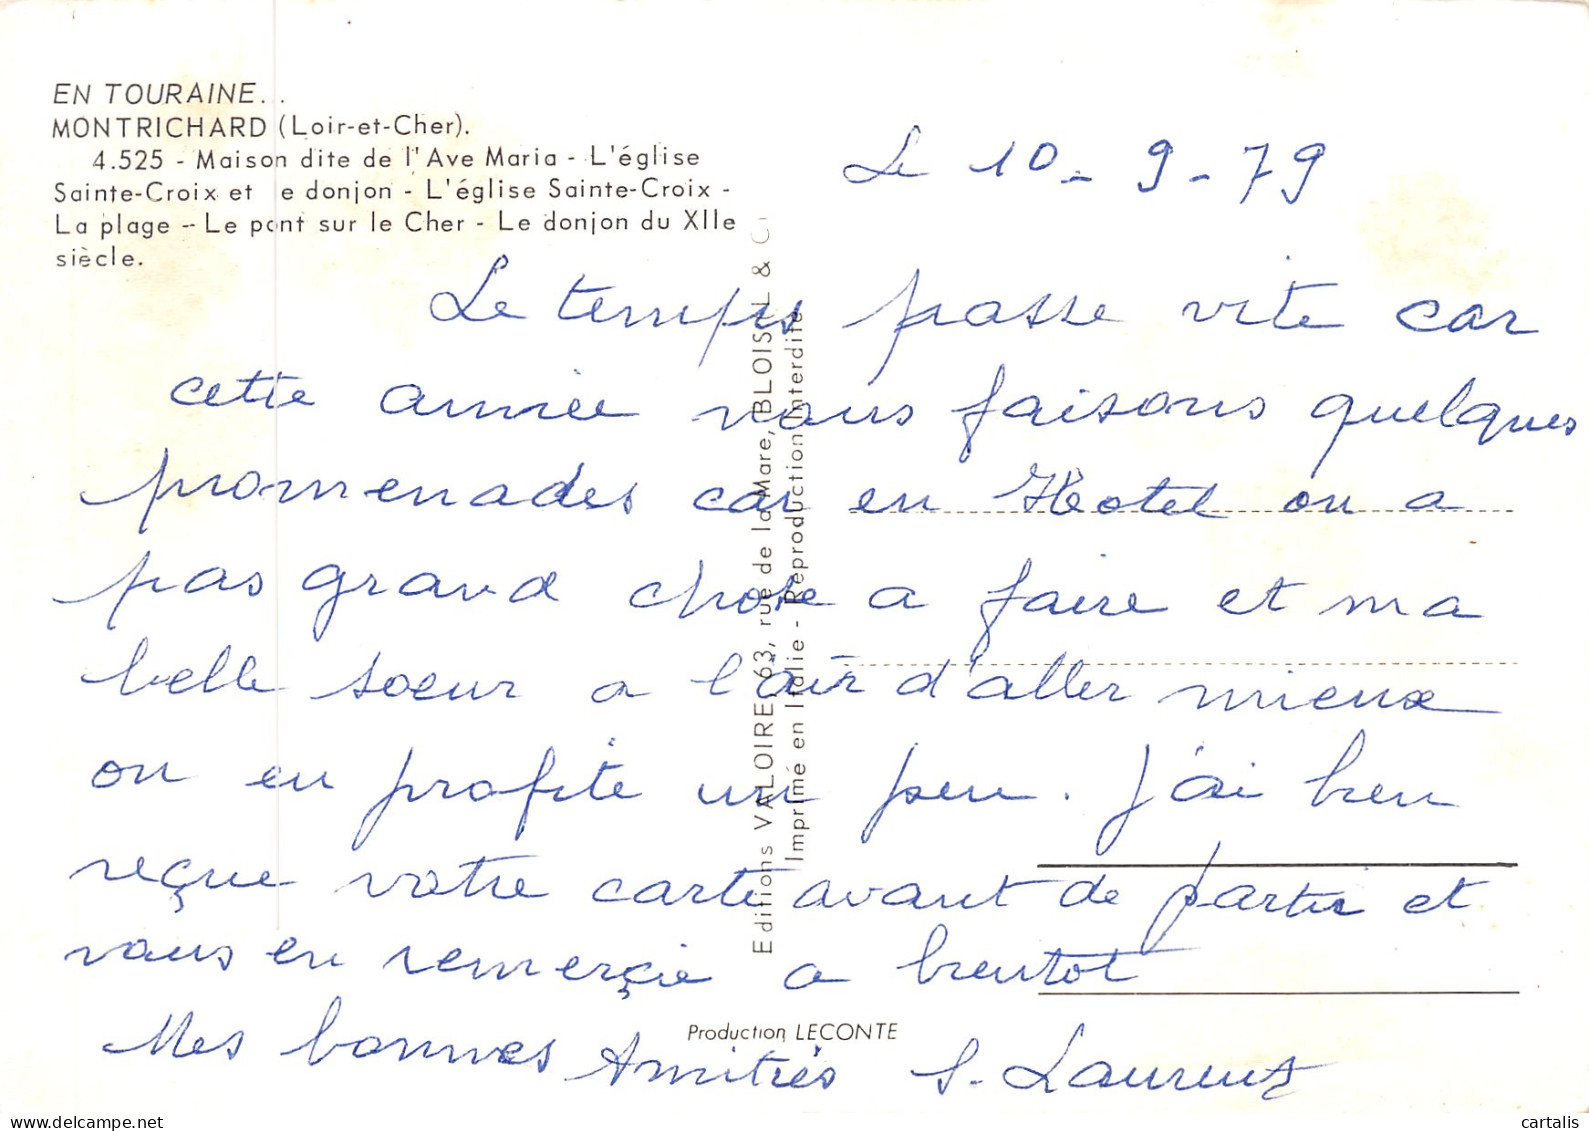 EN TOURAINE...
MONTRICHARD (Loir-et-Cher).
4.525 - Maison dite de l'Ave Maria - L'église
Sainte-Croix et e donjon - L'église Sainte-Croix -
La plage - Le pont sur le Cher - Le donjon du XIIe
siècle.
Le 10 - 9 - 79
Le temps passe vite car
cette année nous faisons quelques
promenades car en Hotel on a
pas grand chose a faire et ma
belle soeur a l'air d'aller mieux
on en profite un peu. J'ai bien
reçue votre carte avant de partir et
vous en remerçie a bientot
Mes bonnes Amitiés S. Laurent
Editions VALOIRE, 63, rue de la Mare, BLOIS
Imprimé en Italie - Reproduction interdite
Production LECONTE
cartalis